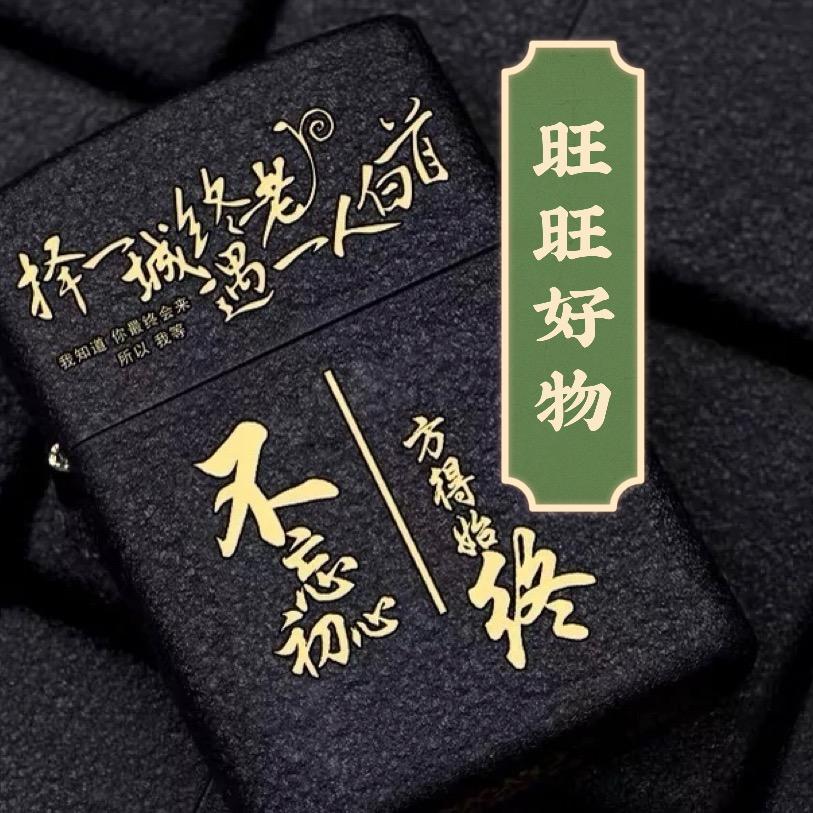 择一城终老
遇一人白首
我知道 你最终会来
所以 我等
不忘初心
方得始终
旺旺好物